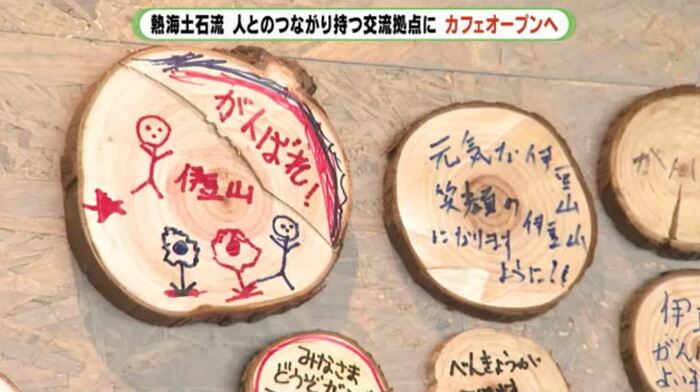 熱海土石流 人とのつながり持つ交流拠点に カフェオープンへ
がんばれ!
伊豆山
元気な伊豆山
笑顔の伊豆山
になります
ように!!
がん
みなさま
どうぞが
べんきょうが
伊
がん
よい